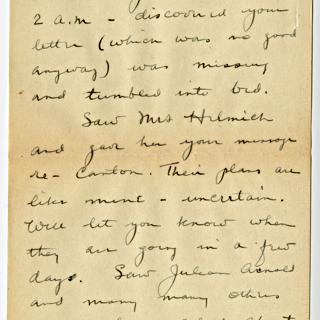 2 a.m - discovered your
letter (which was no good
anyway) was missing
and tumbled into bed.
Saw Mrs Helmich
and gave her your message
re - Canton. Their plans are
like mine - uncertain.
Will let you know when
they are going in a few
days. Saw Julean Arnold
and many many others